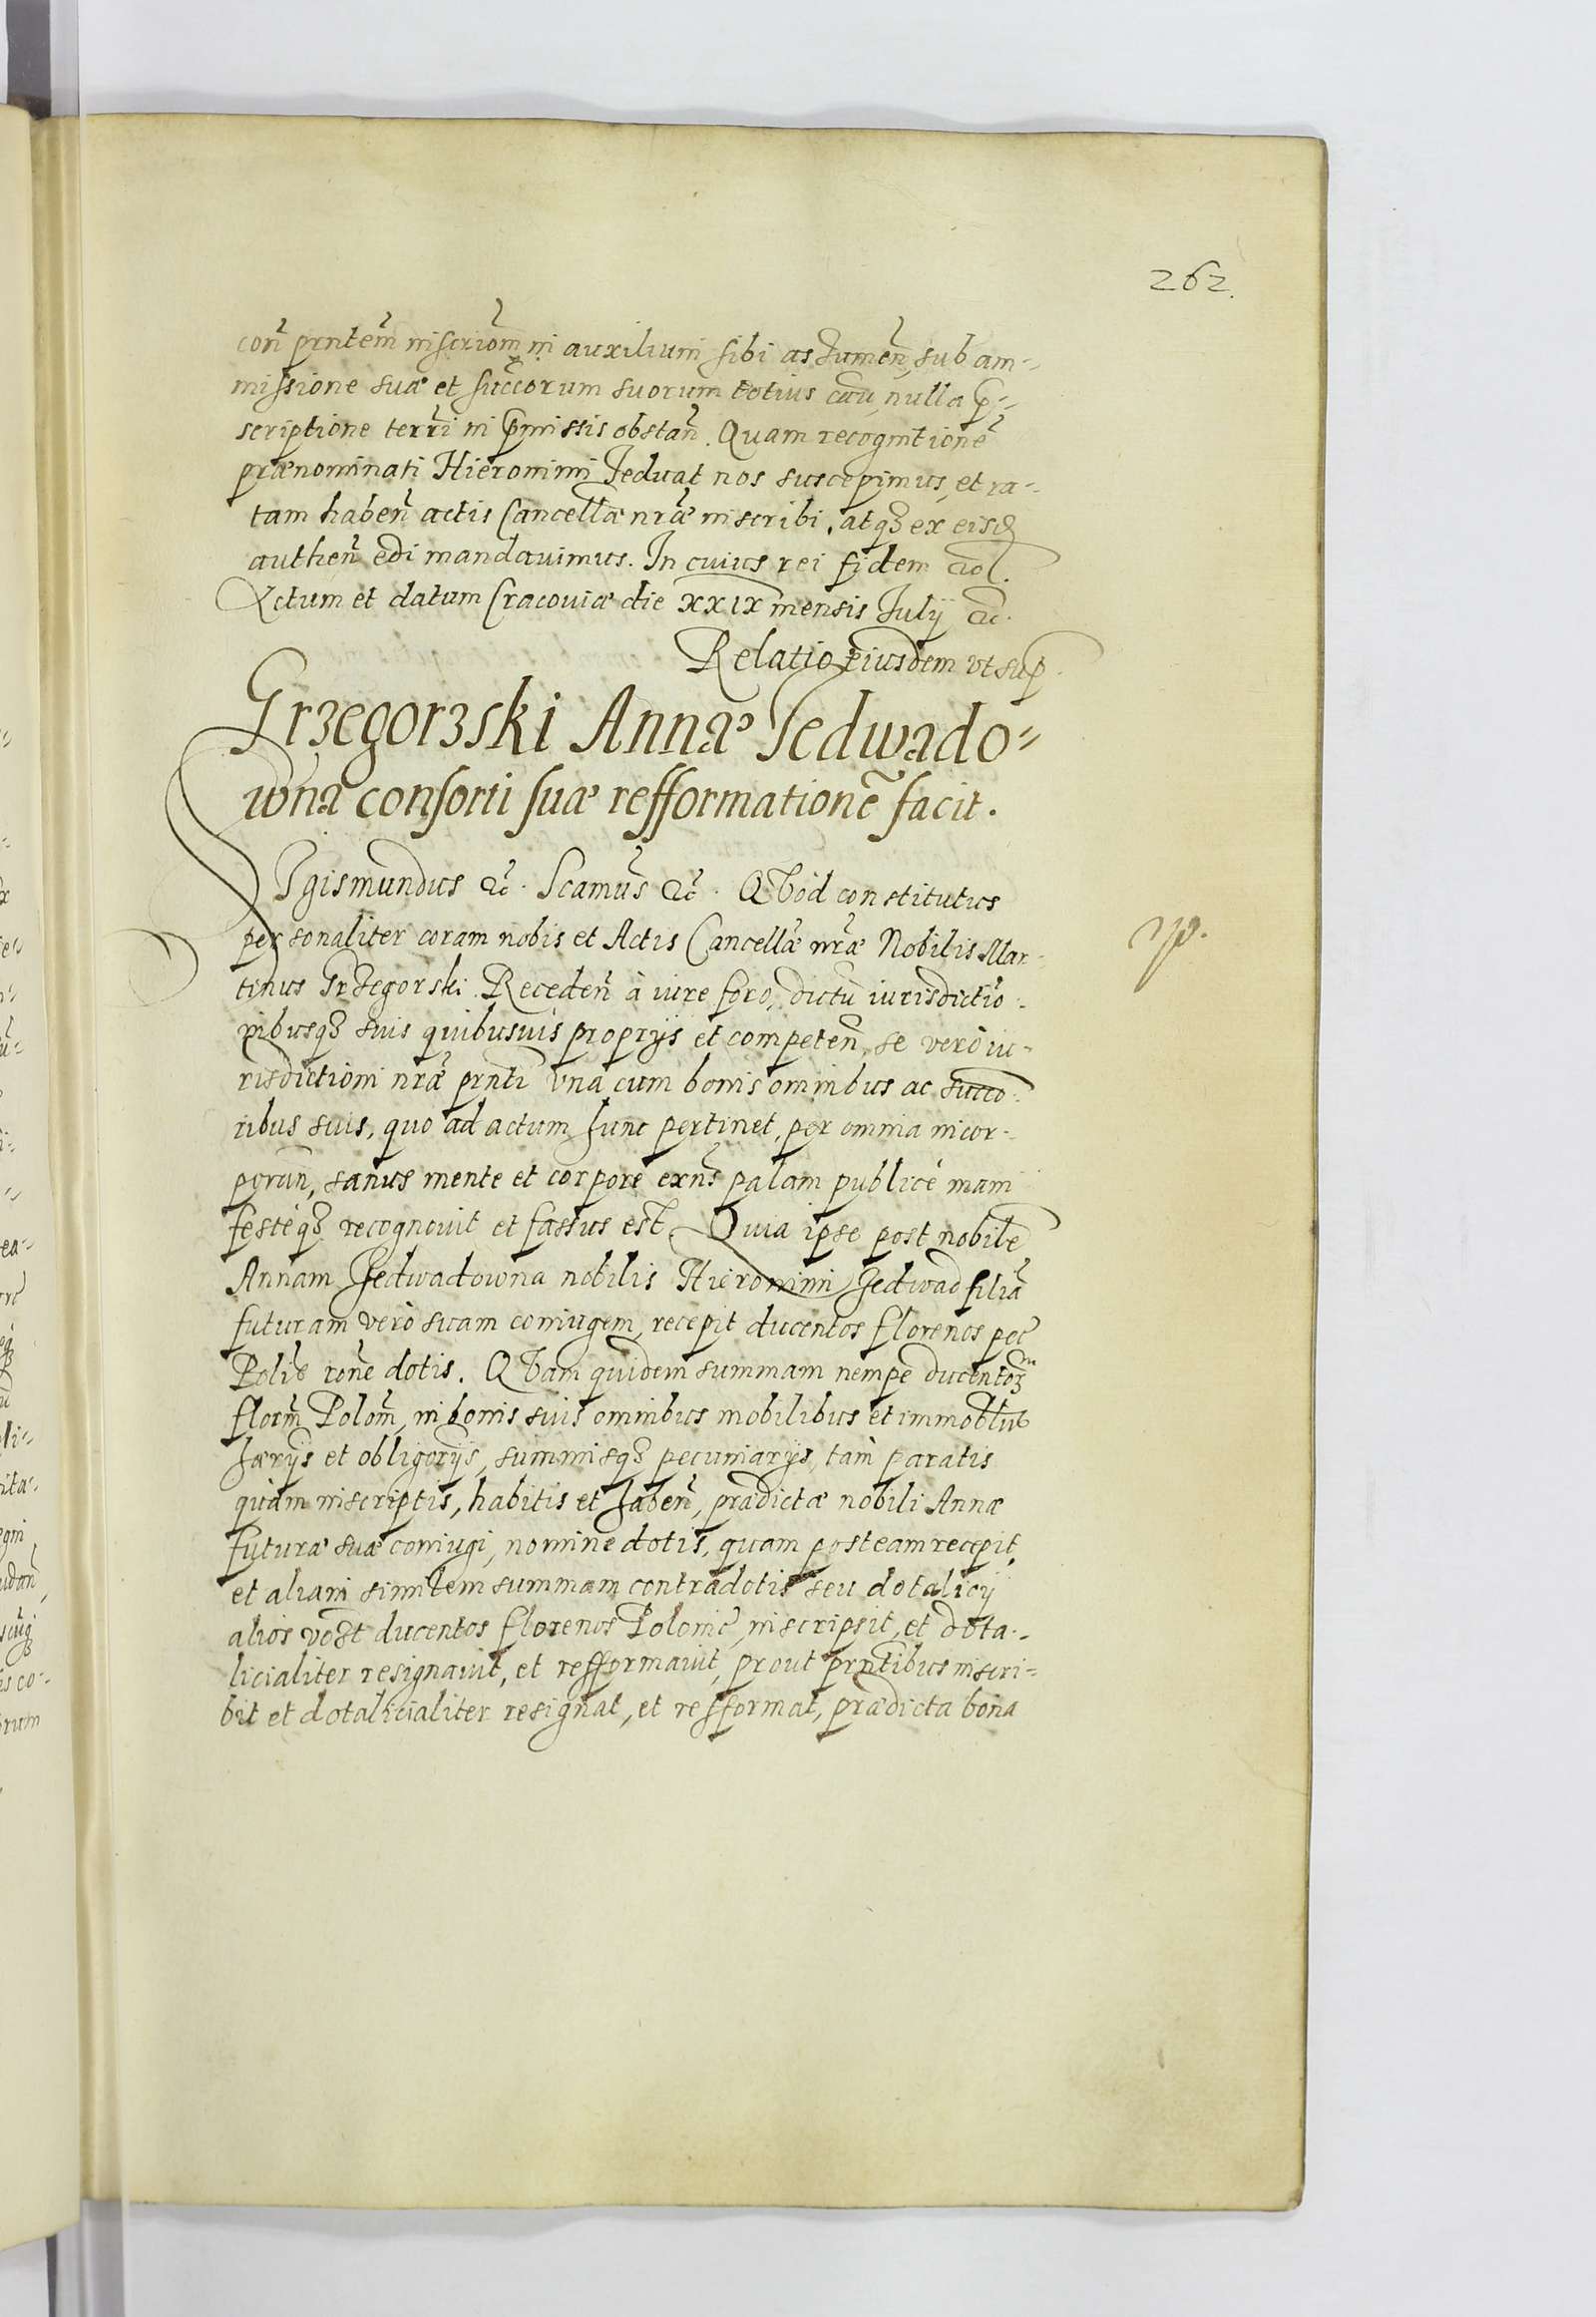 262.
con̄ prntem̄ inscriom̄ in auxilium sibi assumen̄, sub am-
missione suæ et succorum suorum totius caū, nulla p̄-
scriptione terr̄i in p̄missis obstan̄. Quam recognitionē
prænominati Hieronimi Jedwat nos suscepimus, et ra-
tam haben̄ actis Cancellæ nr̄æ inscribi, atq3 ex eisd
authen̄ edi mandavimus. In cuius rei fidem
Actum et datum Cracoviæ die XXIX mensis Julij &c.
Relatio eiusdem vt sup
Grzegorzski Annæ Jedwado=
wna consorti suæ refformationē facit.
Sigismundus &c. Scamus̄ &c. Qvod constitutus
personaliter coram nobis et Actis Cancellæ nr̄æ Nobilis Mar-
tinus Grzegorski Receden̄ à iure foro, dictu iurisdictio-
nibusq3 suis quibusuis proprijs et competen̄, se verò iu-
risdictioni nræ prnti vna cum bonis omnibus ac succo-
ribus suis, quo ad actum hunc pertinet, per omnia incor-
poran̄, sanus mente et corpore exns̄ palam publicè mani
festèq3 recognovit et fassus est. Quia ipse post nobilē
Annam Jedwadowna nobilis Hieronimi Jedwad filiā
futuram verò suam coniugem, recepit ducentos florenos pec̄
Polīe ron̄e dotis. Qvam quidem summam nempe ducentor3
florm̄ Polom̄, in bonis suis omnibus mobilibus et immobilib
hærijs et obligorijs, summisq3 pecuniarijs, tàm paratis
quàm inscriptis, habitis et haben̄, prædictæ nobili Annæ
futuræ suæ coniugi, nomine dotis, quam post eam recepit,
et aliam similem summam contradotis seu dotalicij
alios vɜt ducentos florenos Polonic̄, inscripsit, et dota-
licialiter resignavit, et refformavit, prout prntibus inscri=
bit et dotalicialiter resignat, et refformat, prædicta bona